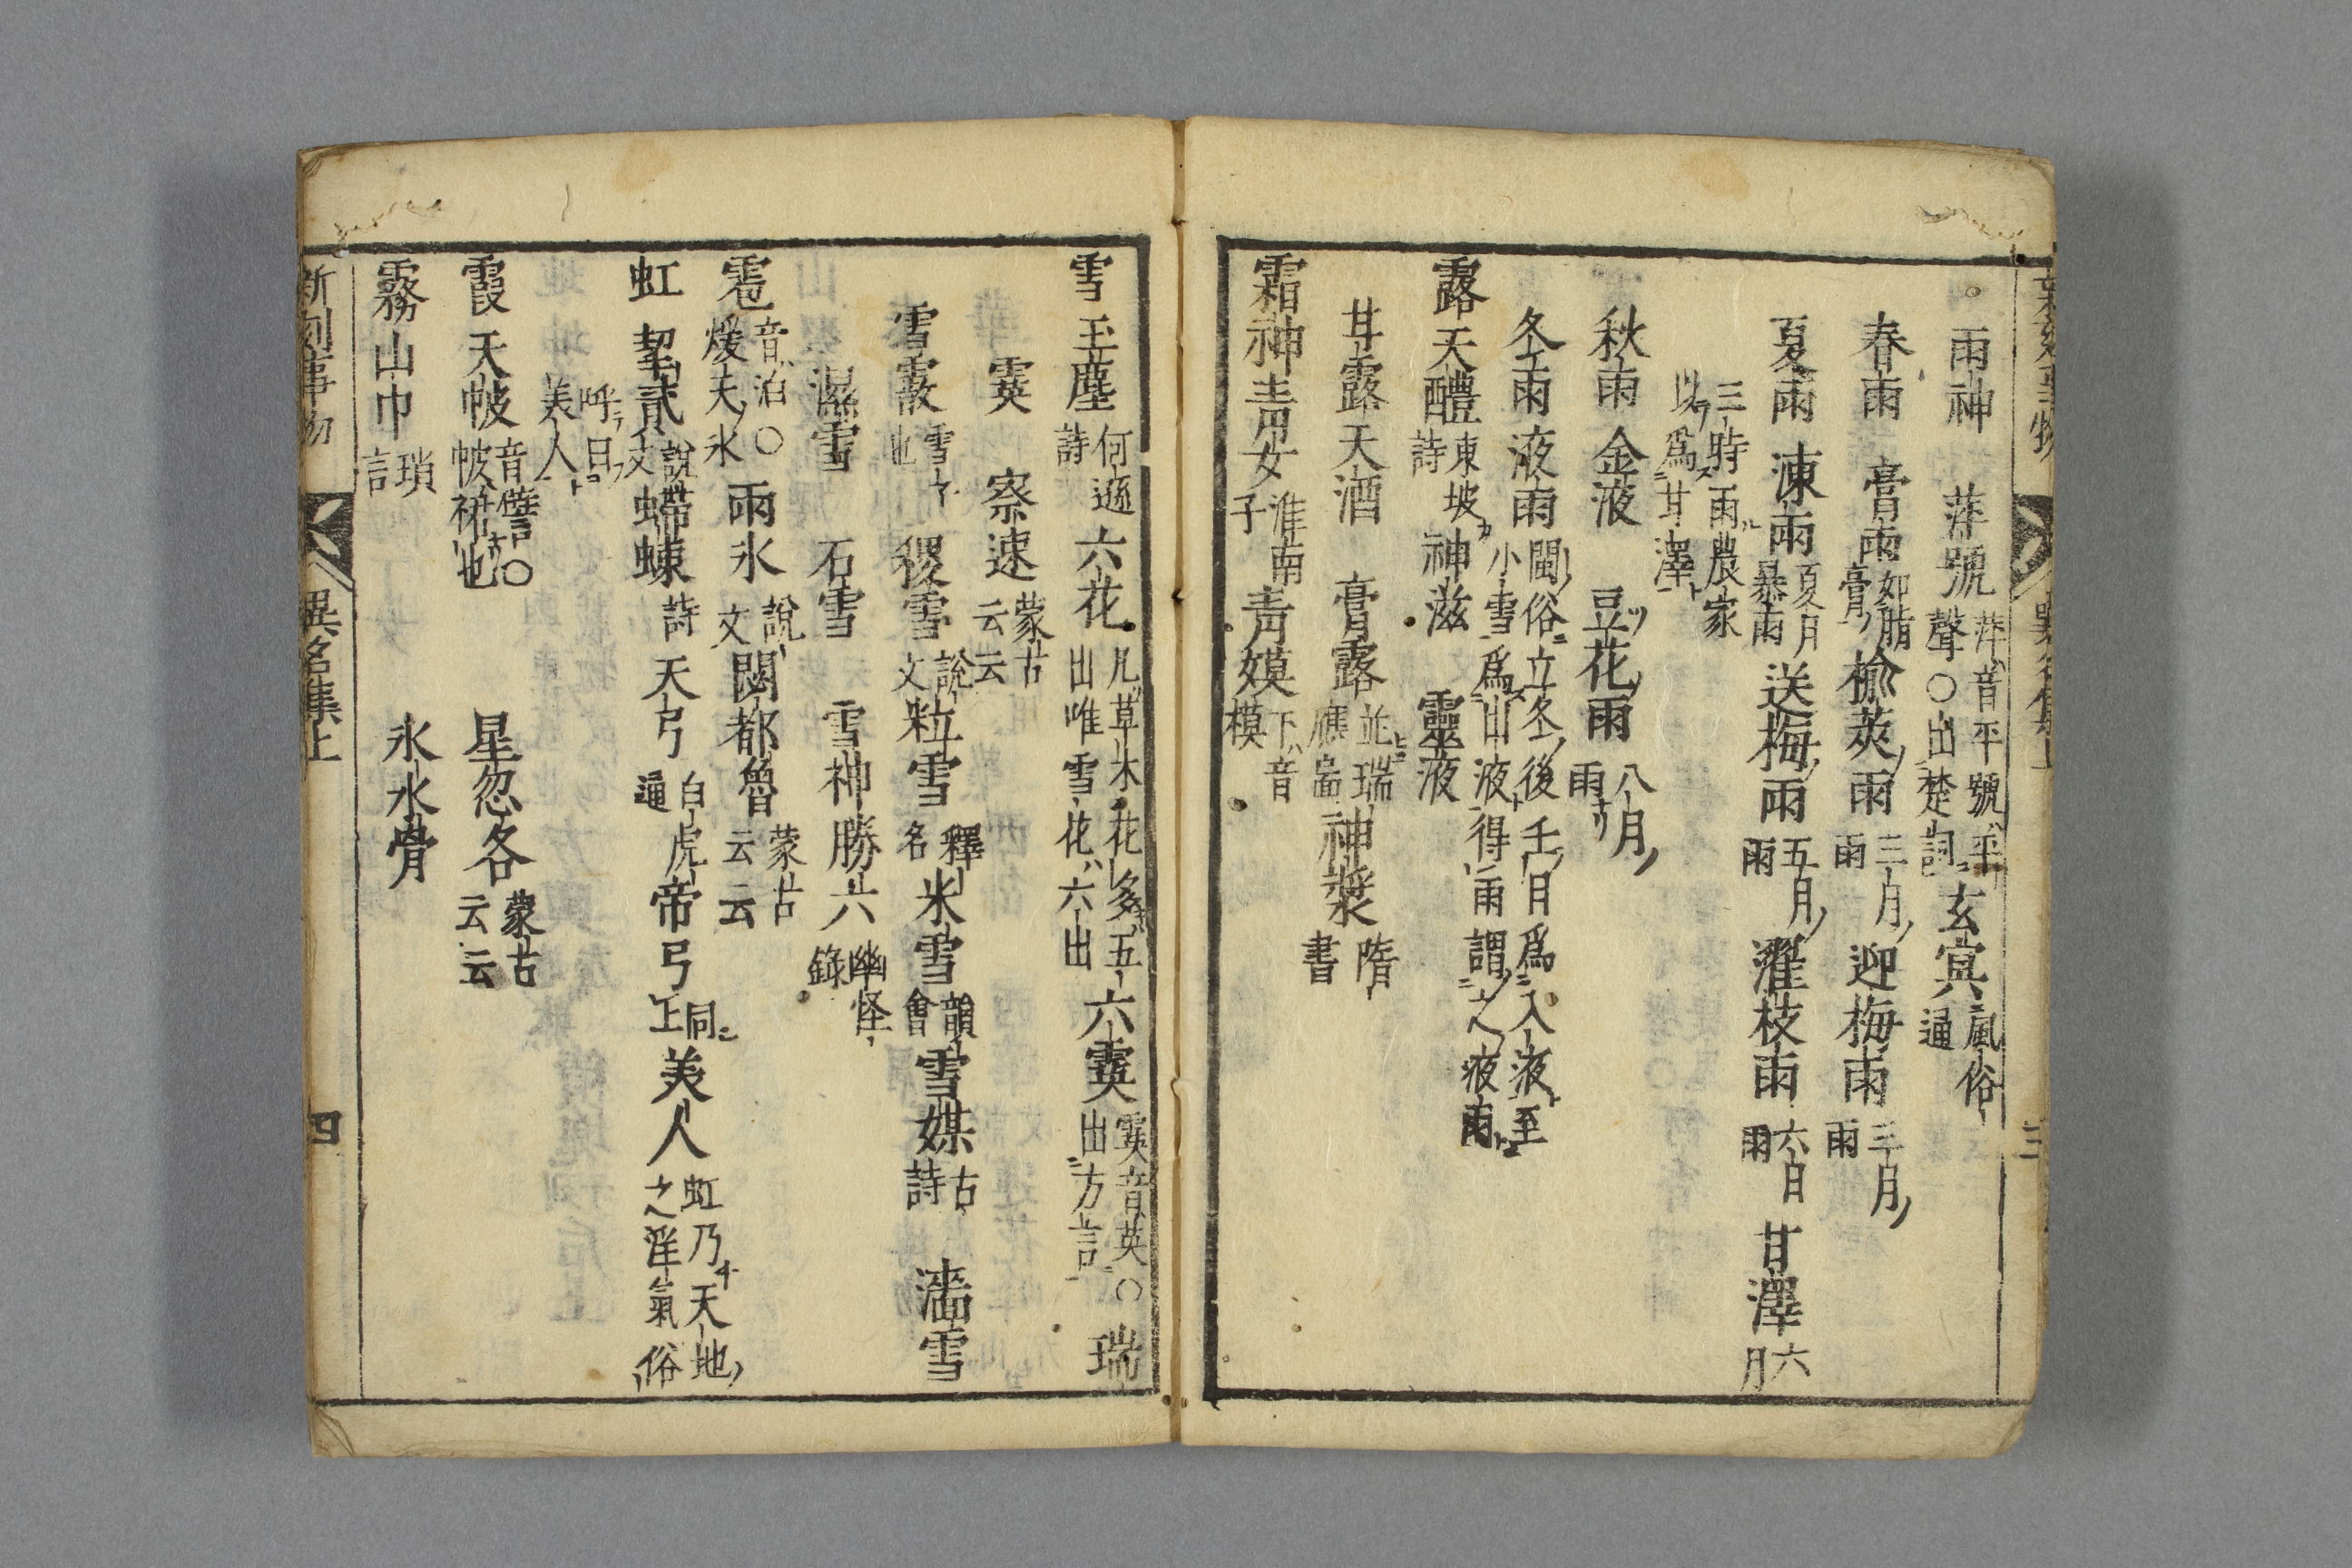 雨神　蓱號 蓱音平號平聲○出楚詞 玄冥 風俗通
春雨　膏雨 如脂膏 榆莢雨 三月雨 迎梅雨 三月雨
夏雨　涷雨 夏月暴雨 送梅雨 五月雨 濯枝雨 六日雨 甘澤 六月
三時雨農家以爲甘澤
秋雨　金液　豆花雨 八月雨
冬雨　液雨 閩俗立冬後壬日爲入液至小雪爲出液得雨謂之液雨
露　天醴 東坡詩 神滋　靈液
甘露　天酒　膏露 並瑞應啚 神漿 隋書
霜神　青女 淮南子 青娭 下音模
三
雪　玉塵 何遜詩 六花 凡草木花多五出唯雪花六出 六霙 霙音英○出方言 瑞
霙　察速 蒙古云云
雪霰 雪也 稷雪 說文 粒雪 釋名 米雪 韻會 雪媒 古詩 濇雪
濕雪　石雪　雪神　勝六 幽怪錄
雹 音泊○煖夫氷 雨氷 說文 閿都魯 蒙古云云
虹　挈貳 說文 蝃蝀 詩 天弓 白虎通 帝弓 同上 美人 虹乃天地之淫氣俗
呼曰美人
霞　天帔 音譬○帔裙也　星忽各 蒙古云云
霧　山巾 瑣言　氷　水骨
新刻事物　異名集上　四